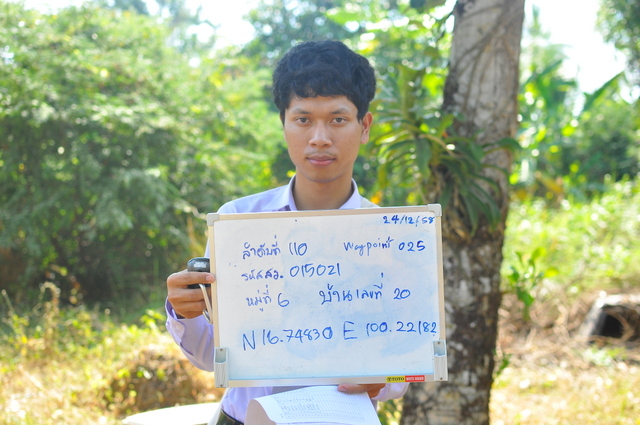 24/12/58
ลำดับที่ 110 Waypoint 025
รหัสสว. 015021
หมู่ที่ 6 บ้านเลขที่ 20
N 16.74830 E 100.22182